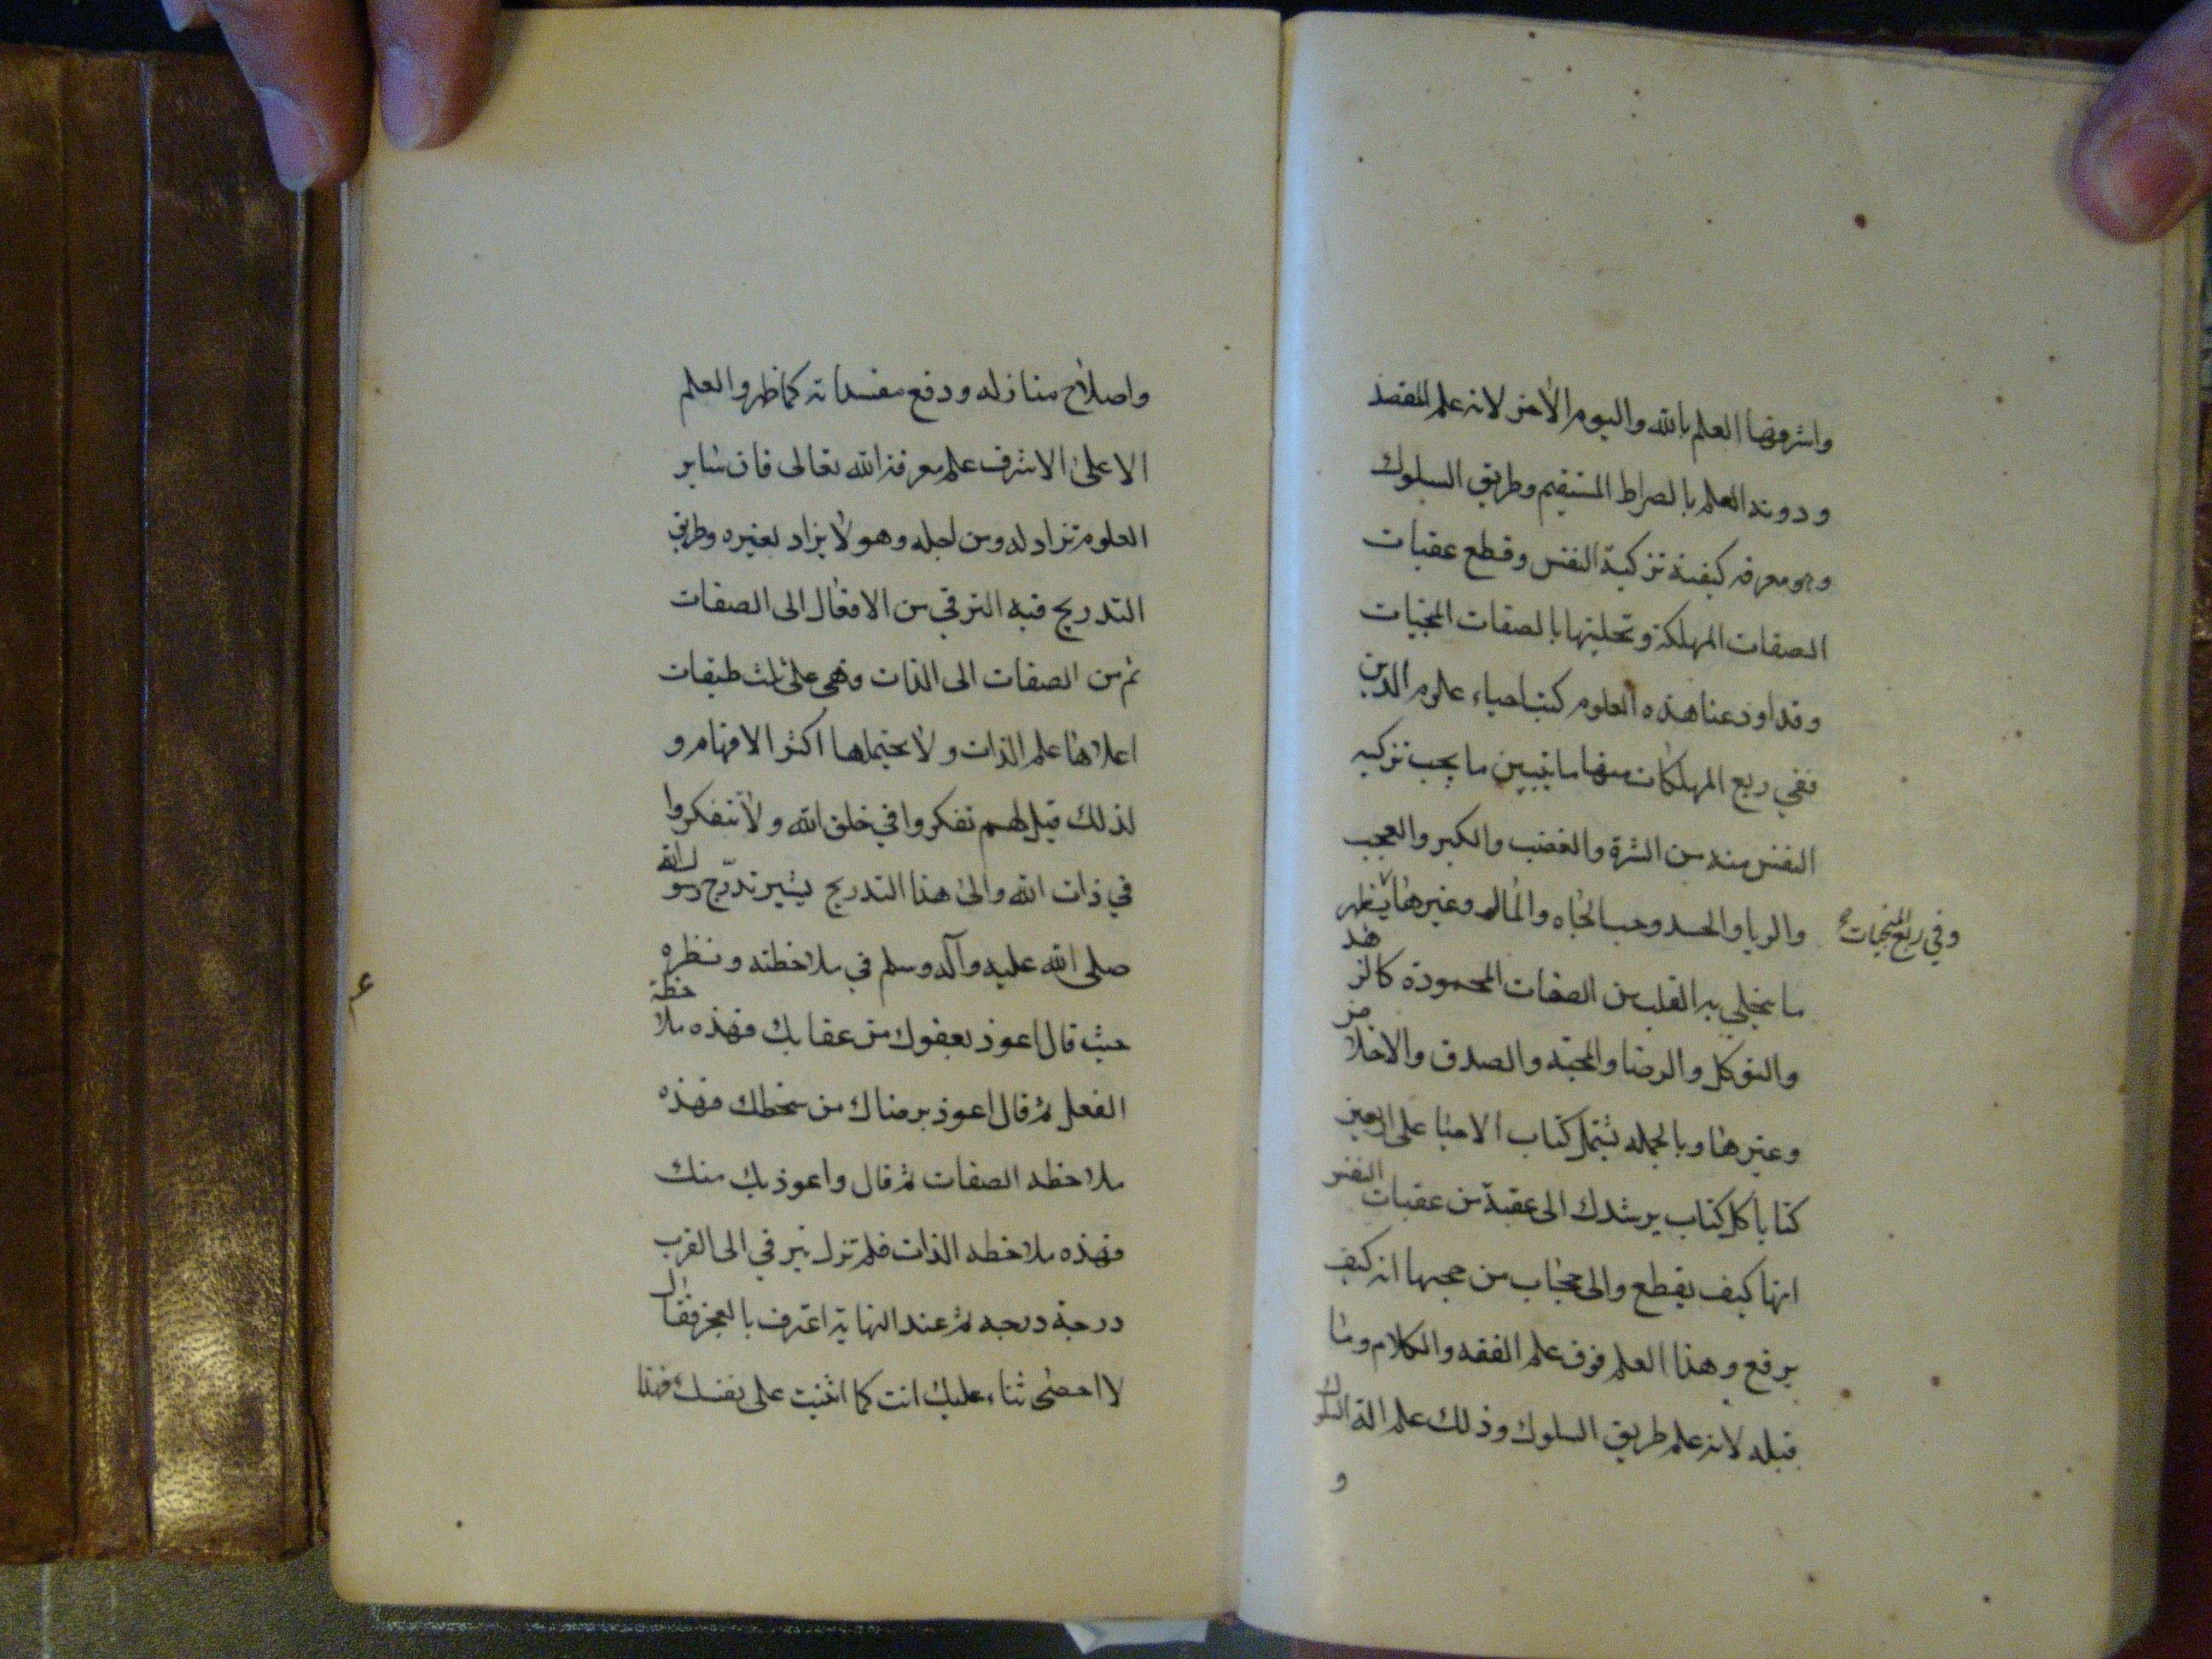 واشرفها العلم بالله واليوم الآخر لانه علم المقصد
ودونه العلم بالصراط المستقيم وطريق السلوك
وهو معرفه كيفية تزكية النفس وقطع عقبات
الصفات المهلكة وتحليتها بالصفات المنجيات
وقد اودعنا هذه العلوم كتب احياء علوم الدين
ففي ربع المهلكات منها ما يتبين ما يجب تزكيه
النفس منه من الشره والغضب والكبر والعجب
والريا والحسد وحب الجاه والمال وغيرها يظهر
وفي ربع المنجيات صح
ما يتحلي به القلب من الصفات المحمودة كالزهد
والتوكل والرضا والمحبة والصدق والاخلاص
وغيرها وبالجمله يشتمل كتاب الاحيا على اربعين
كتابا كل كتاب يرشدك الى عقبة من عقبات النفس
انها كيف يقطع والى حجاب من حجبها انه كيف
يرفع وهذا العلم فوق علم الفقه والكلام وما
قبله لانه علم طريق السلوك وذلك علم الة السلوك
و
واصلاح منازله ودفع مفسداته كما ظهر والعلم
الاعلى الاشرف علم معرفة الله تعالى فان ساير
العلوم تراد له ومن اجله وهو لا يراد لغيره وطريق
التدريج فيه الترقي من الافعال الى الصفات
ثم من الصفات الى الذات وهي على ثلث طبقات
اعلاها علم الذات ولا يحتملها اكثر الافهام و
لذلك قيل لهم تفكروا في خلق الله ولا تتفكروا
في ذات الله والى هذا التدريج يشير تدرّج رسول الله
صلى الله عليه وآله وسلم في ملاحظته ونظره
حيث قال اعوذ بعفوك من عقابك فهذه ملاحظة
الفعل ثم قال اعوذ برضاك من سخطك فهذه
ملاحظه الصفات ثم قال واعوذ بك منك
فهذه ملاحظه الذات فلم تزل يترقي الى القرب
درجة درجه ثم عند النهاية اعترف بالعجز فقال
لا احصى ثناء عليك انت كما اثنيت على نفسك فهذا